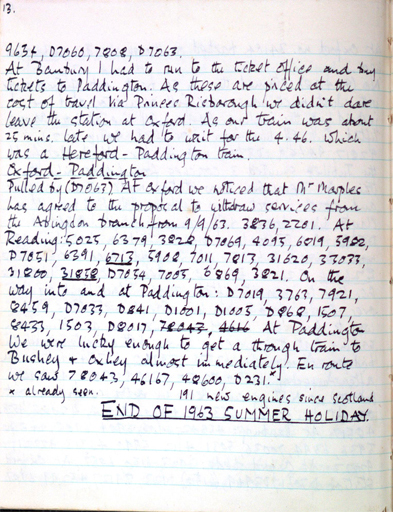 13.
9634, D7060, 7808, D7063.
At Banbury I had to run to the ticket office and buy
tickets to Paddington. As these are priced at the
cost of travel via Princes Risborough we didn't dare
leave the station at Oxford. As our train was about
25 mins. late we had to wait for the 4.46. Which
was a Hereford - Paddington train.
Oxford - Paddington
Pulled by (D7067) At Oxford we noticed that Mr Marples
has agreed to the proposal to withdraw services from
the Abingdon branch from 9/9/63. 3836, 2201. At
Reading: 5025, 6379, 3828, D7069, 4095, 6819, 5982,
D7051, 6391, 6713, 5908, 7011, 7813, 31620, 33033,
31800, 31858, D7054, 7005, 6869, 3821. On the
way into and at Paddington: D7019, 3763, 7921,
8459, D7033, D841, D1001, D1005, D868, 1507,
8433, 1503, D8017, 78043, 4616 At Paddington
We were lucky enough to get a through train to
Bushey & Oxhey almost immediately. En route
we saw 78043, 46167, 48600, D231.*
* already seen. 191 new engines since Scotland
END OF 1963 SUMMER HOLIDAY.